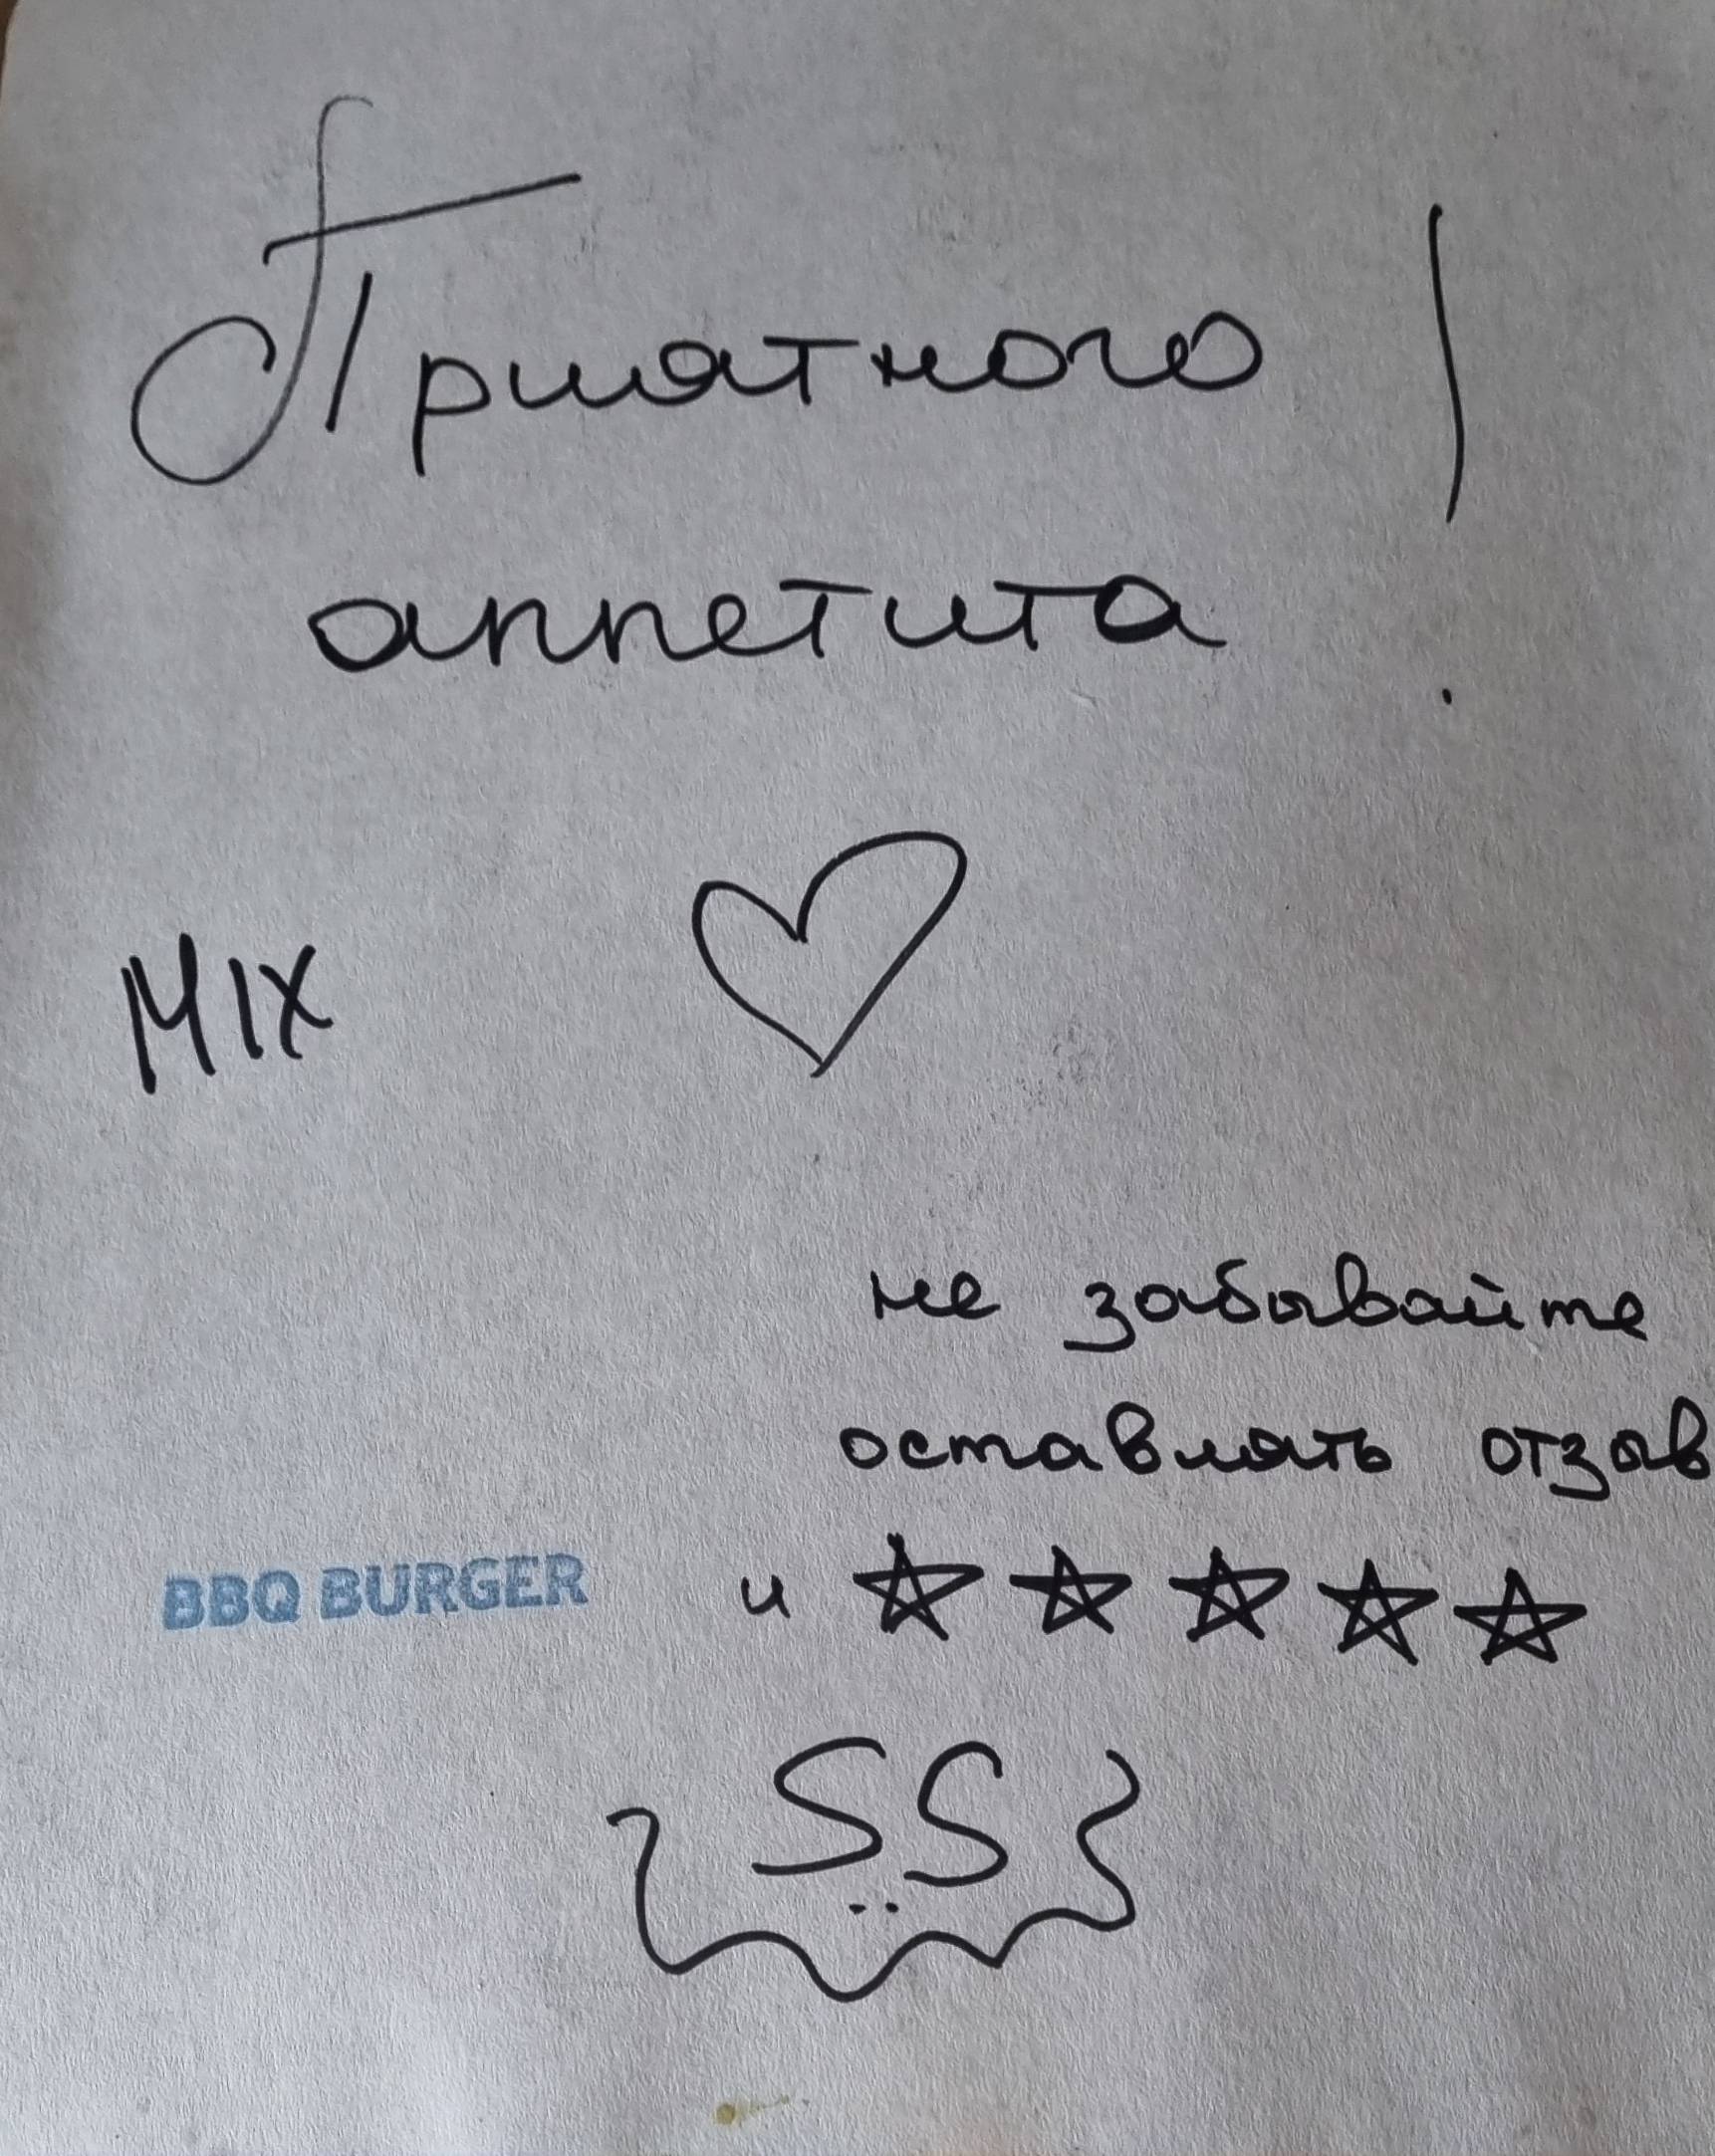 Приятного
аппетита!
MIX
не забывайте
оставлять отзыв
BBQ BURGER
и
SS